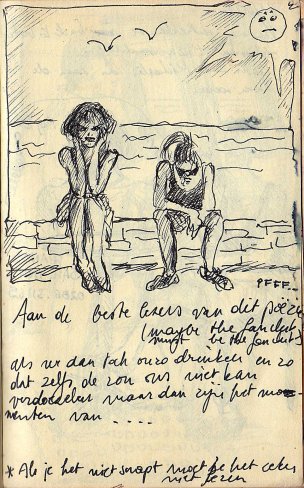 PFFF..
Aan de beste lezers van dit poëzie
(maybe the fanclub)
might be the fanclub)
als we dan toch ouzo drinken en zo
dat zelfs de zon ons niet kan
maar dan zijn het mo-
menten van .....
* Als je het niet snapt moet je het
niet lezen